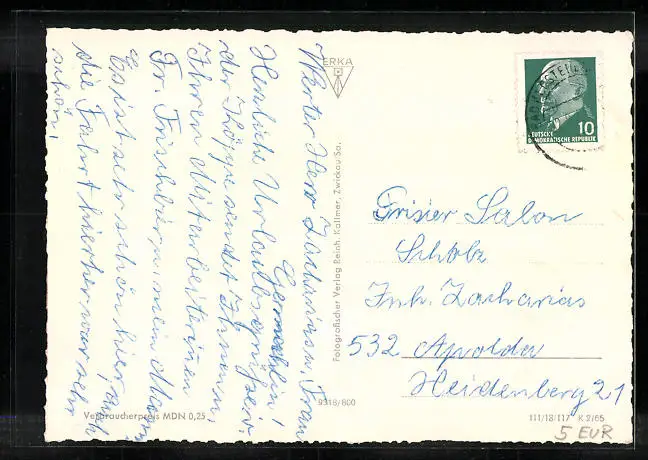 Werter Herr Zacharias u. Frau
Gemahlin!
Herzliche Urlaubsgrüße v.
der Köppe sendet Ihnen u.
Ihren Mitarbeiterinnen
Fr.
Es ist sehr schön hier, auch
die Fahrt hierher war sehr
schön.
ERKA
Fotografischer Verlag Reinh. Kallmer, Zwickau/Sa.
10
DEUTSCHE
DEMOKRATISCHE REPUBLIK
Frisier Salon
Scholz
Inh. Zacharias
532 Apolda
Heidenberg 21
Verbraucherpreis MDN 0,25
9318/800
111/18/117 K 2/65
5 EUR